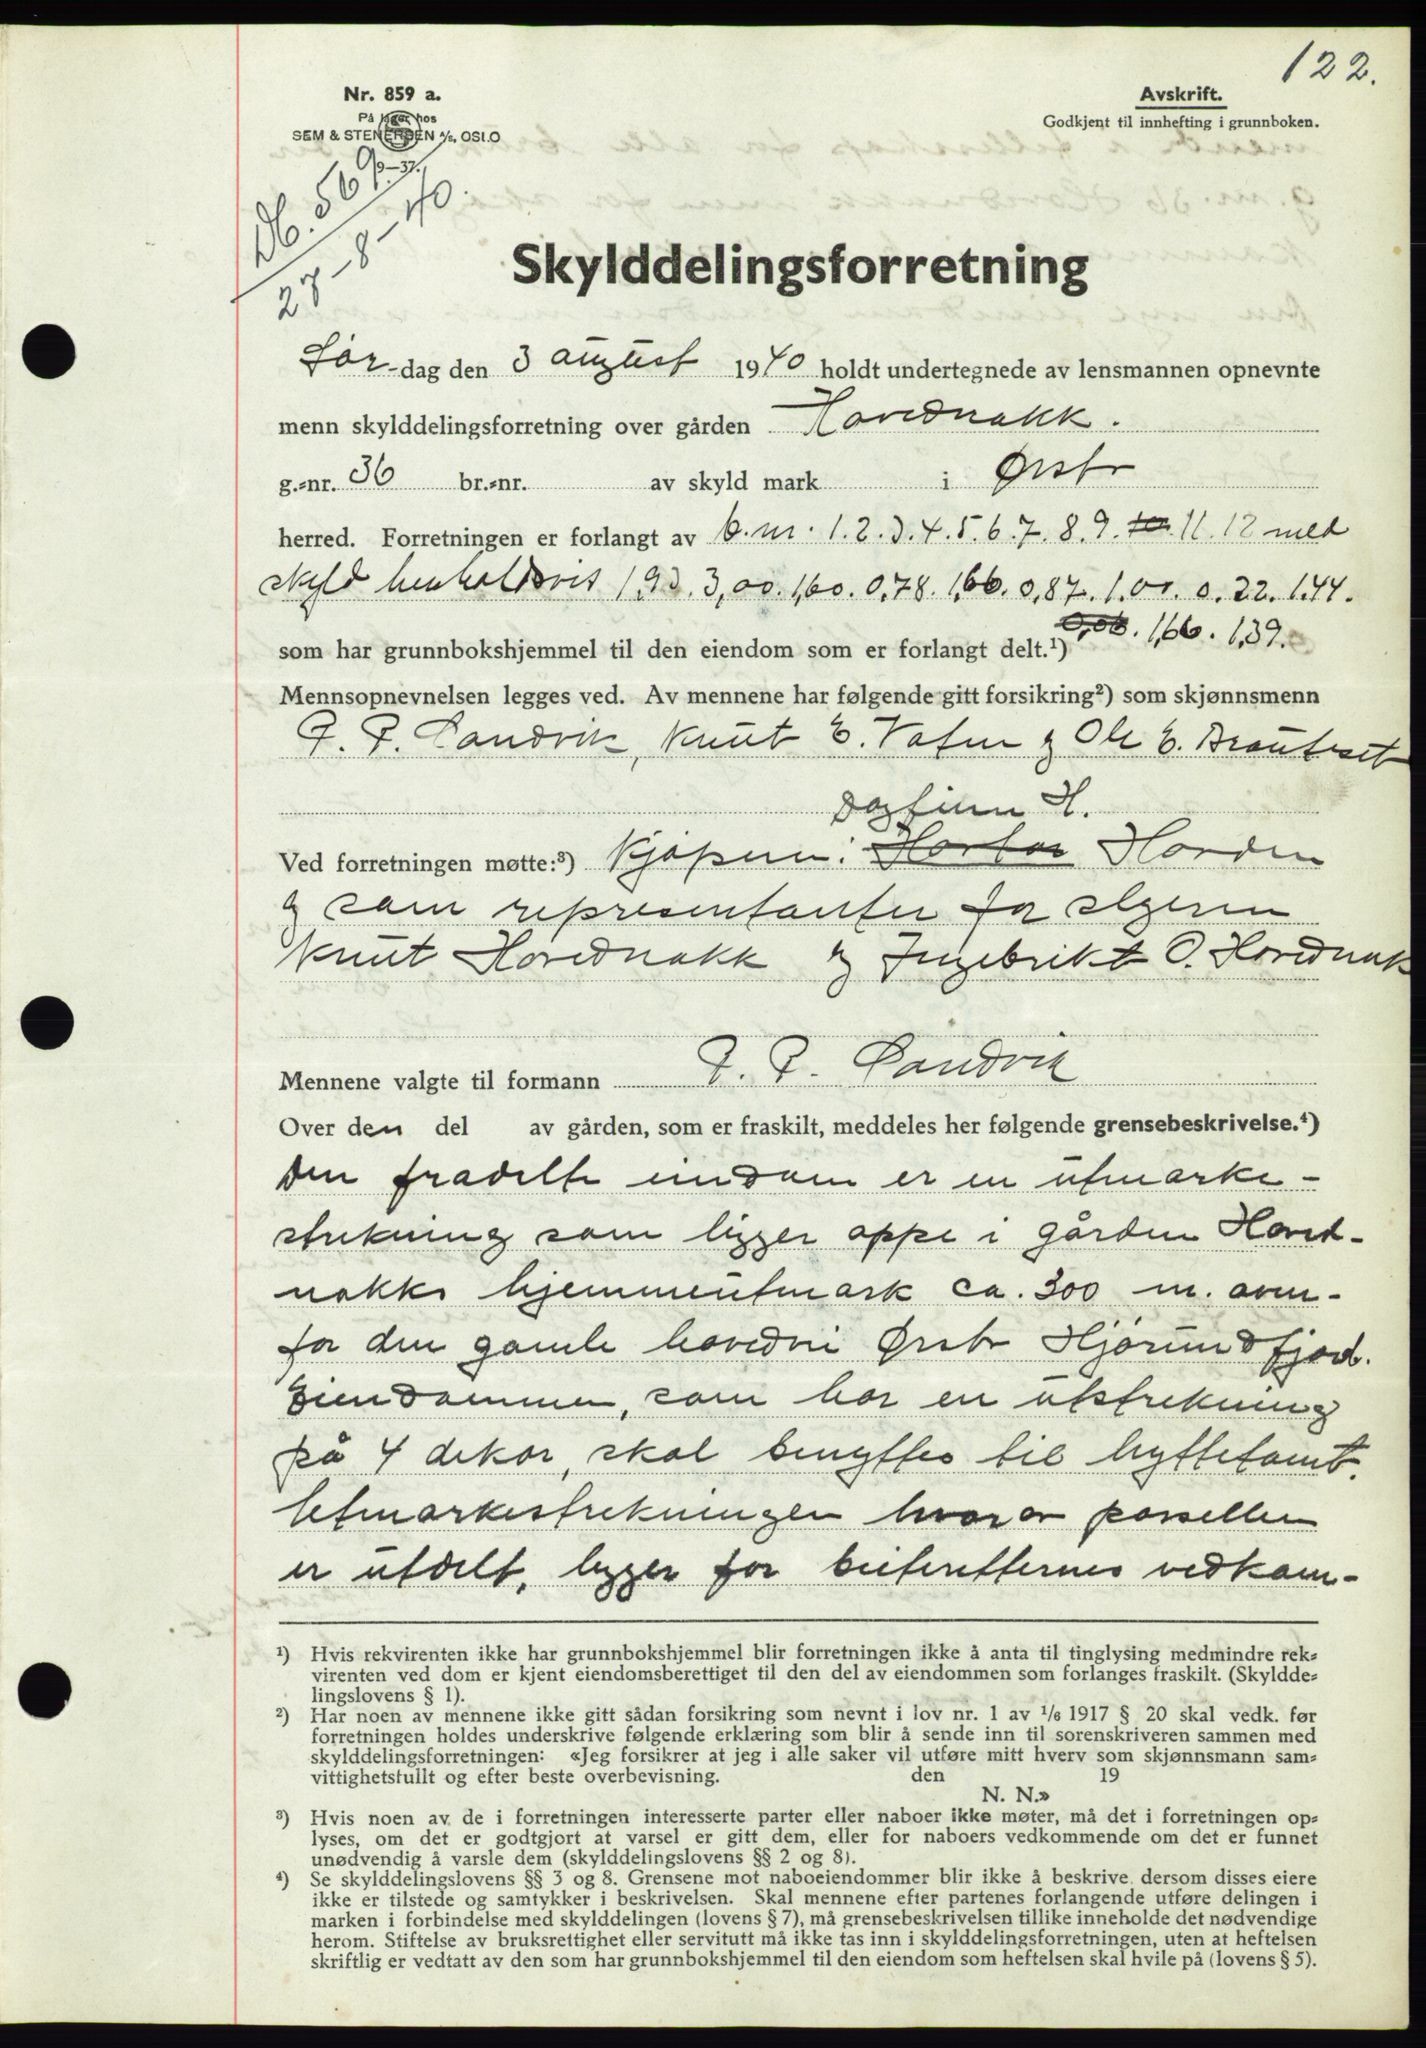 122.
Nr. 859 a.
På lager hos
SEM & STENERSEN A/S, OSLO
9—37.
Avskrift.
Godkjent til innhefting i grunnboken.
Db. 569
27-8-40.
Skylddelingsforretning
Lør-dag den 3 august 1940 holdt undertegnede av lensmannen opnevnte
menn skylddelingsforretning over gården Hovednakk.
g.=nr. 36 br.=nr. av skyld mark i Ørsta
herred. Forretningen er forlangt av b.nr. 1.2.3.4.5.6.7.8.9. 10. 11. 12 med
skyld henholdsvis 1,93. 3,00. 1,60. 0,78. 1,66. 0,87. 1.00. 0.22. 1.44.
0,06. 1,66. 1,39.
som har grunnbokshjemmel til den eiendom som er forlangt delt.¹)
Mennsopnevnelsen legges ved. Av mennene har følgende gitt forsikring²) som skjønnsmenn
P. P. Sandvik, Knut E. Vatne og Ole E. Brauteset
Dagfinn H.
Ved forretningen møtte:³) Kjøperen: Hovden
og som representanter for selgeren
Knut Hovednakk og Ingebrikt O. Hovednakk
Mennene valgte til formann P. P. Sandvik
Over den del av gården, som er fraskilt, meddeles her følgende grensebeskrivelse.⁴)
Den fradelte eiendom er en utmarks-
strekning som ligger oppe i gården Hoved-
nakks hjemmeutmark ca. 300 m. oven-
for den gamle hovedvei Ørsta Hjørundfjord.
Eiendommen, som har en utstrekning
på 4 dekar, skal benyttes til hyttetomt.
Utmarkestrekningen hvorav parsellen
er utdelt, ligger for beiteretternes vedkom-
¹) Hvis rekvirenten ikke har grunnbokshjemmel blir forretningen ikke å anta til tinglysing medmindre rek=
virenten ved dom er kjent eiendomsberettiget til den del av eiendommen som forlanges fraskilt. (Skyldde=
lingslovens § 1).
²) Har noen av mennene ikke gitt sådan forsikring som nevnt i lov nr. 1 av 1/6 1917 § 20 skal vedk. før
forretningen holdes underskrive følgende erklæring som blir å sende inn til sorenskriveren sammen med
skylddelingsforretningen: «Jeg forsikrer at jeg i alle saker vil utføre mitt hverv som skjønnsmann sam=
vittighetsfullt og efter beste overbevisning. den 19
N. N.»
³) Hvis noen av de i forretningen interesserte parter eller naboer ikke møter, må det i forretningen op=
lyses, om det er godtgjort at varsel er gitt dem, eller for naboers vedkommende om det er funnet
unødvendig å varsle dem (skylddelingslovens §§ 2 og 8).
⁴) Se skylddelingslovens §§ 3 og 8. Grensene mot naboeiendommer blir ikke å beskrive dersom disses eiere
ikke er tilstede og samtykker i beskrivelsen. Skal mennene efter partenes forlangende utføre delingen i
marken i forbindelse med skylddelingen (lovens § 7), må grensebeskrivelsen tillike inneholde det nødvendige
herom. Stiftelse av bruksrettighet eller servitutt må ikke tas inn i skylddelingsforretningen, uten at heftelsen
skriftlig er vedtatt av den som har grunnbokshjemmel til den eiendom som heftelsen skal hvile på (lovens § 5).